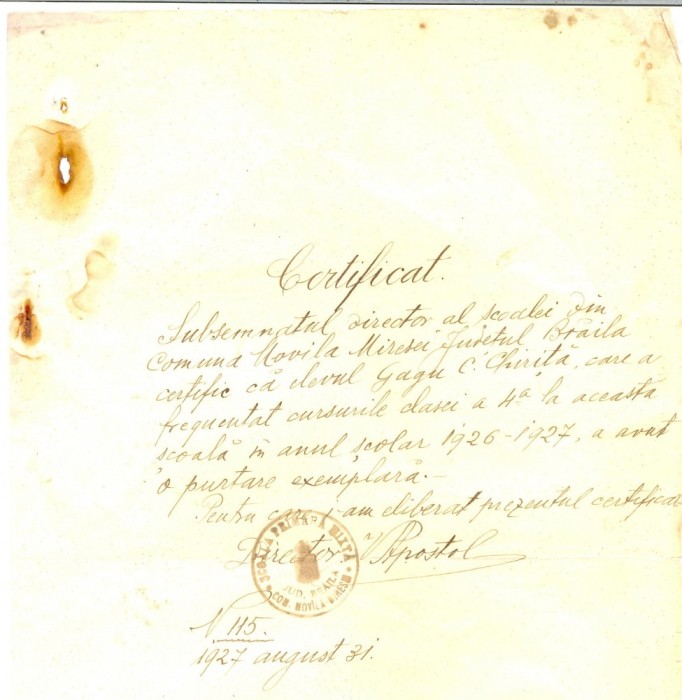 Certificat.
Subsemnatul director al scoalei din
Comuna Movila Miresei Județul Brăila
certific că elevul Gagu C. Chiriță, care a
frequentat cursurile clasei a 4ª la această
școală în anul școlar 1926-1927, a avut
o purtare exemplară.-
Pentru care i-am eliberat prezentul certificat
Director Apostol
SCOALA PRIMARĂ MIXTĂ
JUD. BRAILA
COM. MOVILA MIRESII
N 115.
1927 august 31.